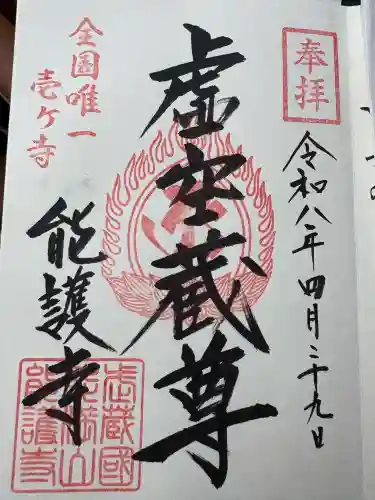 奉拝
令和八年四月二十九日
虚空蔵尊
全国唯一
壱ケ寺
能護寺
武蔵國
能護寺